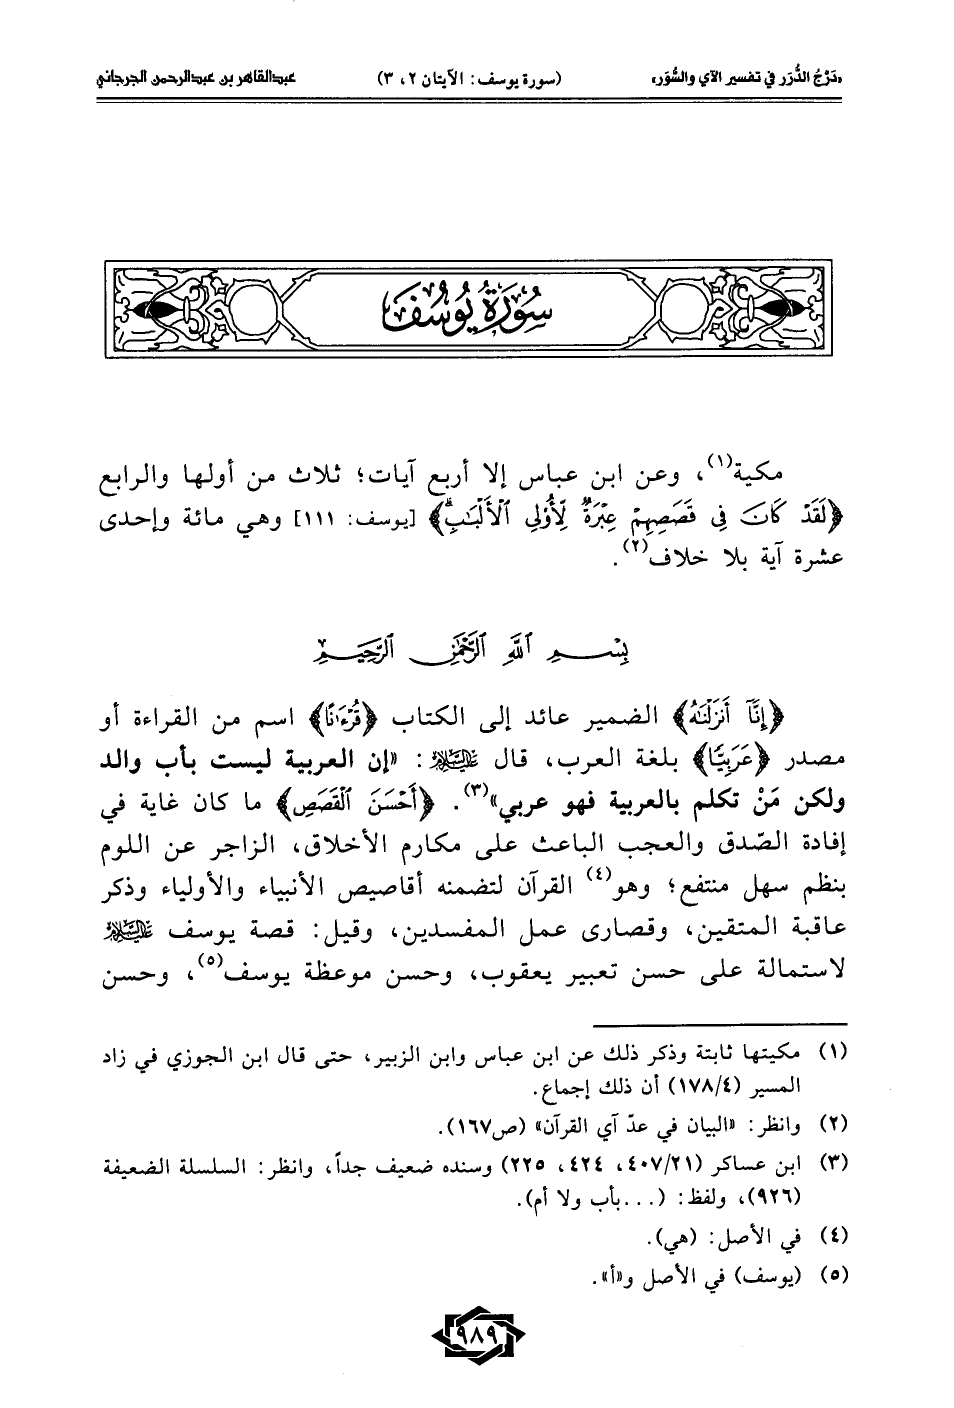 «دَرْجُ الدُّرَر في تفسير الآي والسُّوَر» (سورة يوسف: الآيتان ٢، ٣) عبدالقاهر بن عبدالرحمن الجرجاني
سُورَةُ يُوسُفَ
مكية(١)، وعن ابن عباس إلا أربع آيات؛ ثلاث من أولها والرابع
﴿لَقَدْ كَانَ فِي قَصَصِهِمْ عِبْرَةٌ لِّأُوْلِي ٱلْأَلْبَٰبِۗ﴾ [يوسف: ١١١] وهي مائة وإحدى
عشرة آية بلا خلاف(٢).
بِسْمِ ٱللَّهِ ٱلرَّحْمَٰنِ ٱلرَّحِيمِ
﴿إِنَّآ أَنزَلْنَٰهُ﴾ الضمير عائد إلى الكتاب ﴿قُرْءَٰنًا﴾ اسم من القراءة أو
مصدر ﴿عَرَبِيًّا﴾ بلغة العرب، قال عليه السلام: «إن العربية ليست بأب والد
ولكن مَنْ تكلم بالعربية فهو عربي»(٣). ﴿أَحْسَنَ ٱلْقَصَصِ﴾ ما كان غاية في
إفادة الصّدق والعجب الباعث على مكارم الأخلاق، الزاجر عن اللوم
بنظم سهل منتفع؛ وهو(٤) القرآن لتضمنه أقاصيص الأنبياء والأولياء وذكر
عاقبة المتقين، وقصارى عمل المفسدين، وقيل: قصة يوسف عليه السلام
لاستمالة على حسن تعبير يعقوب، وحسن موعظة يوسف(٥)، وحسن
(١) مكيتها ثابتة وذكر ذلك عن ابن عباس وابن الزبير، حتى قال ابن الجوزي في زاد
المسير (١٧٨/٤) أن ذلك إجماع.
(٢) وانظر: «البيان في عدّ آي القرآن» (ص١٦٧).
(٣) ابن عساكر (٤٠٧/٢١، ٤٢٤، ٢٢٥) وسنده ضعيف جداً، وانظر: السلسلة الضعيفة
(٩٢٦)، ولفظ: (...بأب ولا أم).
(٤) في الأصل: (هي).
(٥) (يوسف) في الأصل و«أ».
٩٨٩